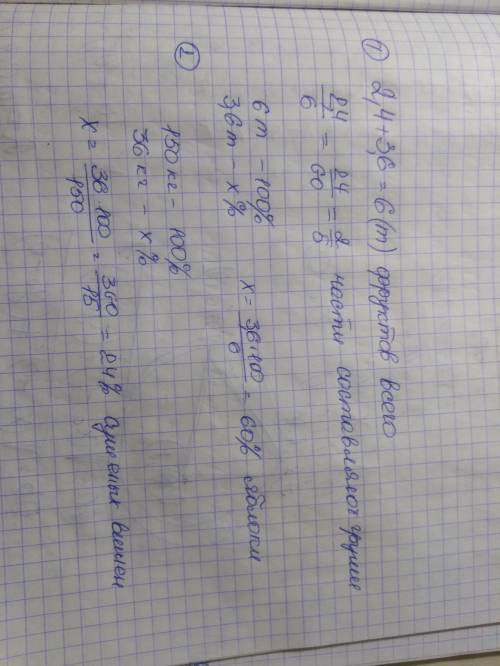 ① 2,4+3,6 = 6(т) фруктов всего
2,4/6 = 24/60 = 2/5 части составляют груши
6 т – 100%
3,6 т – x%
x = 3,6·100/6 = 60% яблоки
② 150 кг – 100%
36 кг – x%
x = 36·100/150 = 360/15 = 24% сушеных вишен